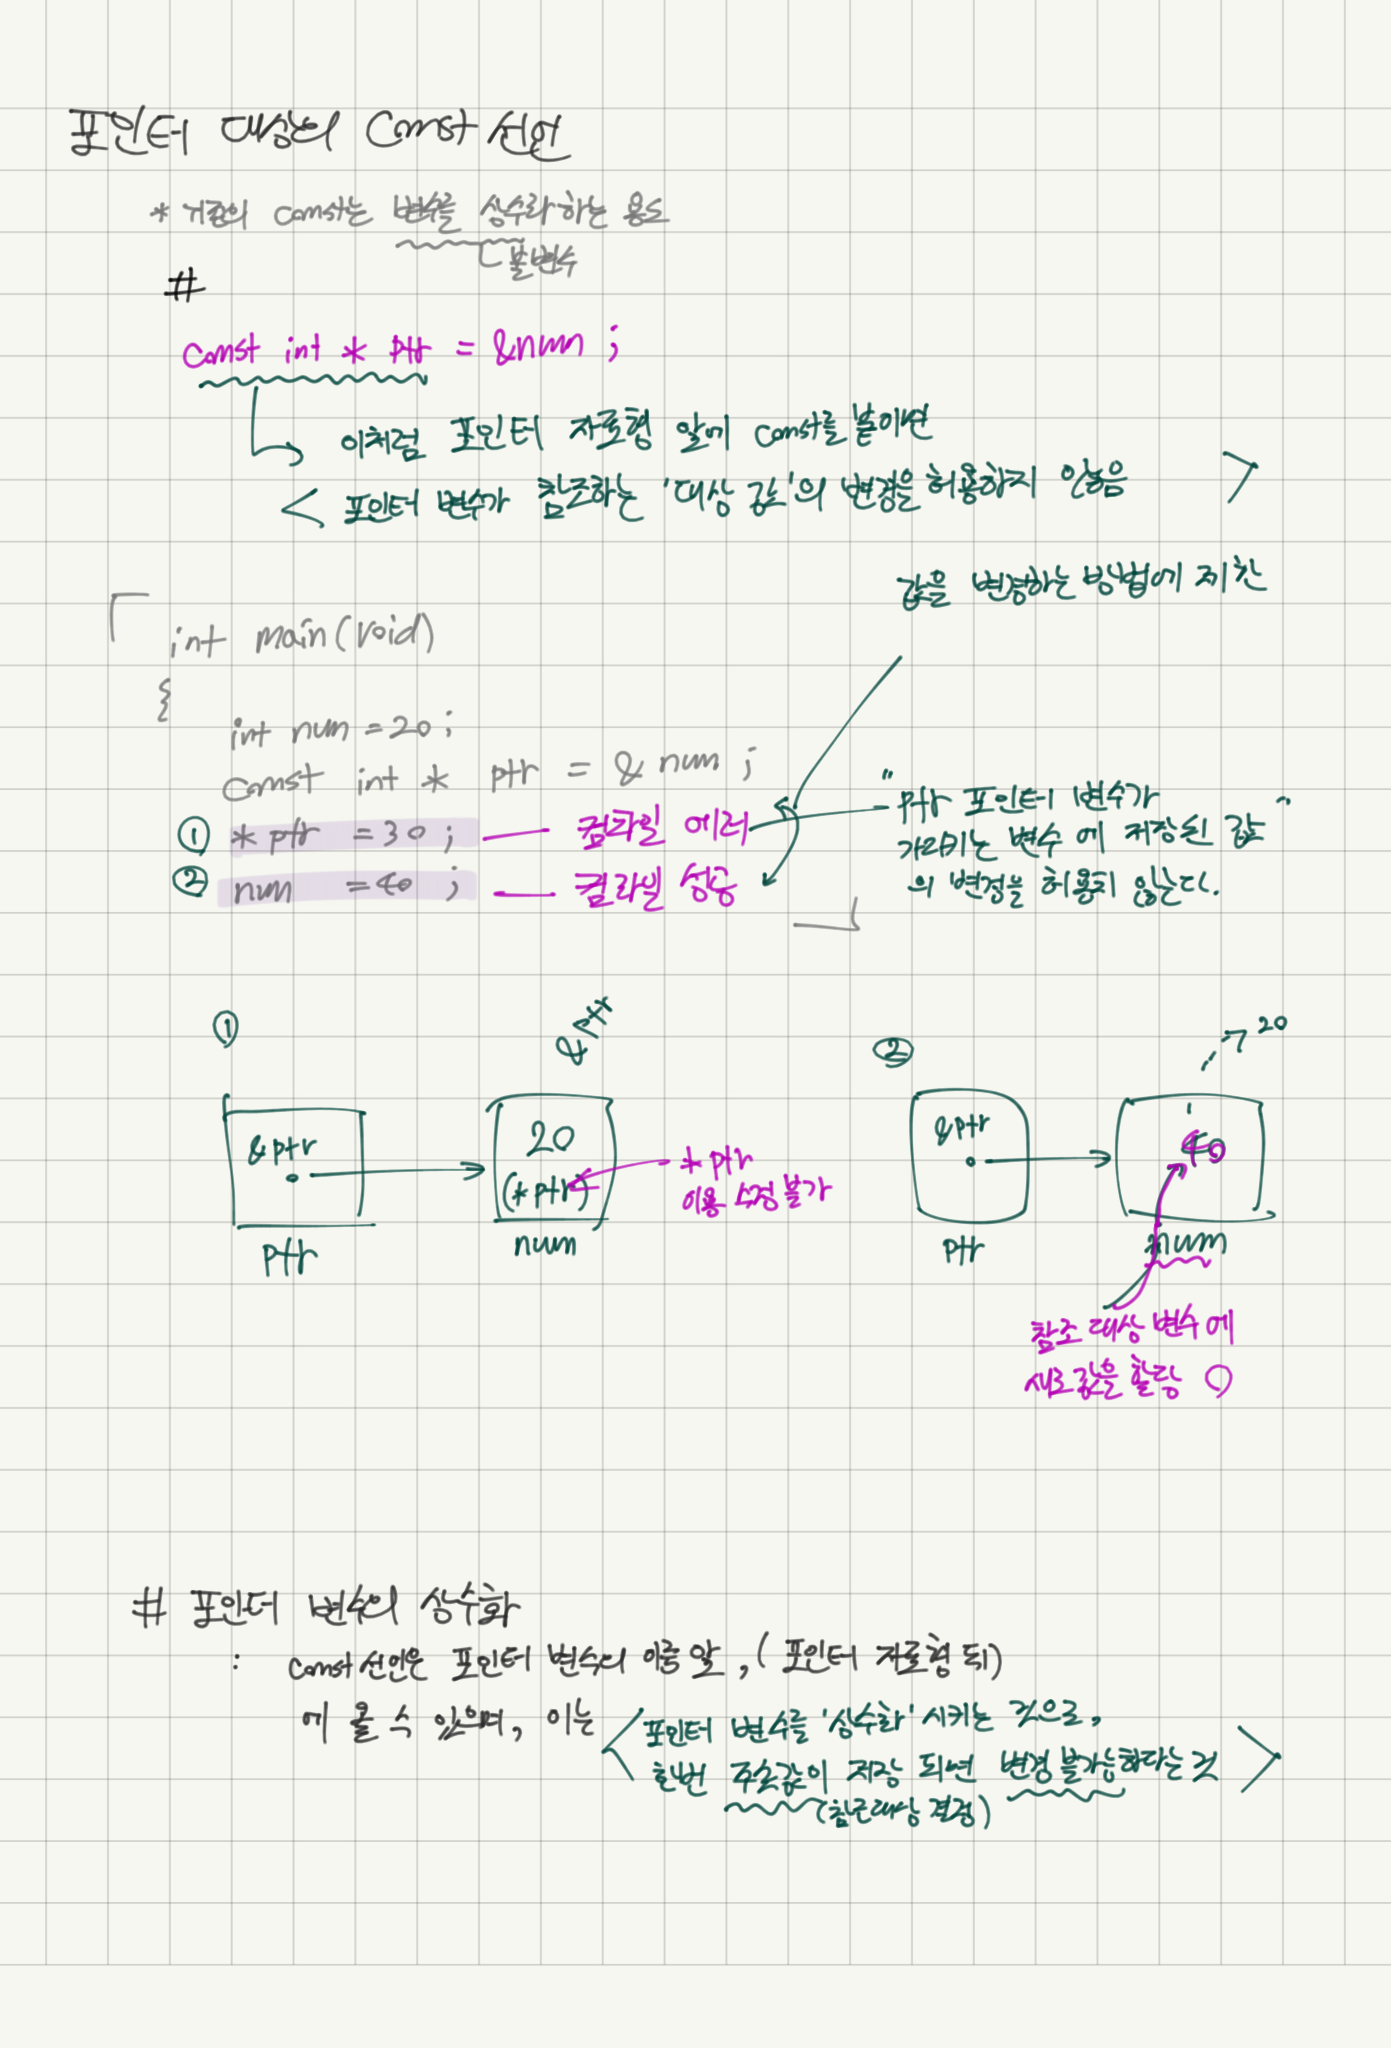 포인터 대상의 const 선언
* 기존의 const는 변수를 상수화 하는 용도
불변수
#
const int * ptr = &num ;
이처럼 포인터 자료형 앞에 const를 붙이면
< 포인터 변수가 참조하는 '대상 값'의 변경을 허용하지 않음 >
값을 변경하는 방법에 제한
int main(void)
{
int num = 20 ;
const int * ptr = & num ;
① * ptr = 30 ; — 컴파일 에러
② num = 40 ; — 컴파일 성공
" ptr 포인터 변수가
가리키는 변수에 저장된 값 "
의 변경을 허용치 않는다.
①
&ptr
ptr
20
(*ptr)
num
* ptr
이용 수정 불가
②
&ptr
ptr
20
40
num
참조 대상 변수에
새로 값을 할당 O
# 포인터 변수의 상수화
: const 선언은 포인터 변수의 이름 앞, (포인터 자료형 뒤)
에 올 수 있으며, 이는 < 포인터 변수를 '상수화' 시키는 것으로,
한번 주솟값이 저장 되면 변경 불가능하다는 것 >
(참조대상 결정)